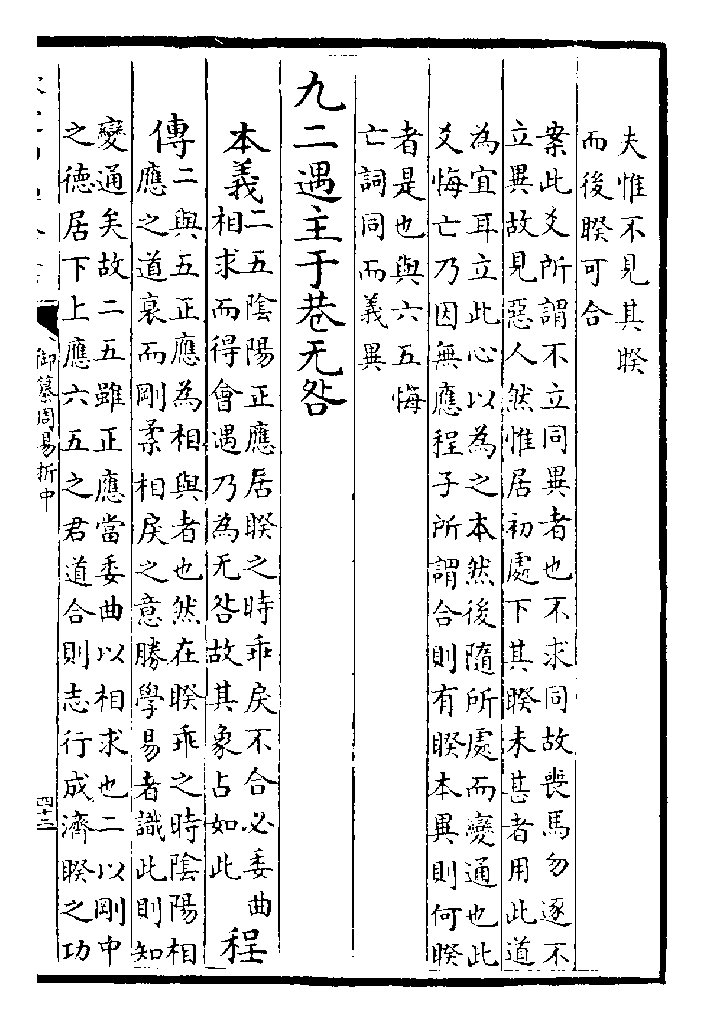 夫惟不見其睽
而後睽可合
案此爻所謂不立同異者也不求同故喪馬勿逐不
立異故見惡人然惟居初處下其睽未甚者用此道
為宜耳立此心以為之本然後隨所處而變通也此
爻悔亡乃因無應程子所謂合則有睽本異則何睽
者是也與六五悔
亡詞同而義異
九二遇主于巷无咎
本義二五陰陽正應居睽之時乖戾不合必委曲
相求而得會遇乃為无咎故其象占如此程
傳二與五正應為相與者也然在睽乖之時陰陽相
應之道衰而剛柔相戾之意勝學易者識此則知
變通矣故二五雖正應當委曲以相求也二以剛中
之德居下上應六五之君道合則志行成濟睽之功
御纂周易折中
四十三